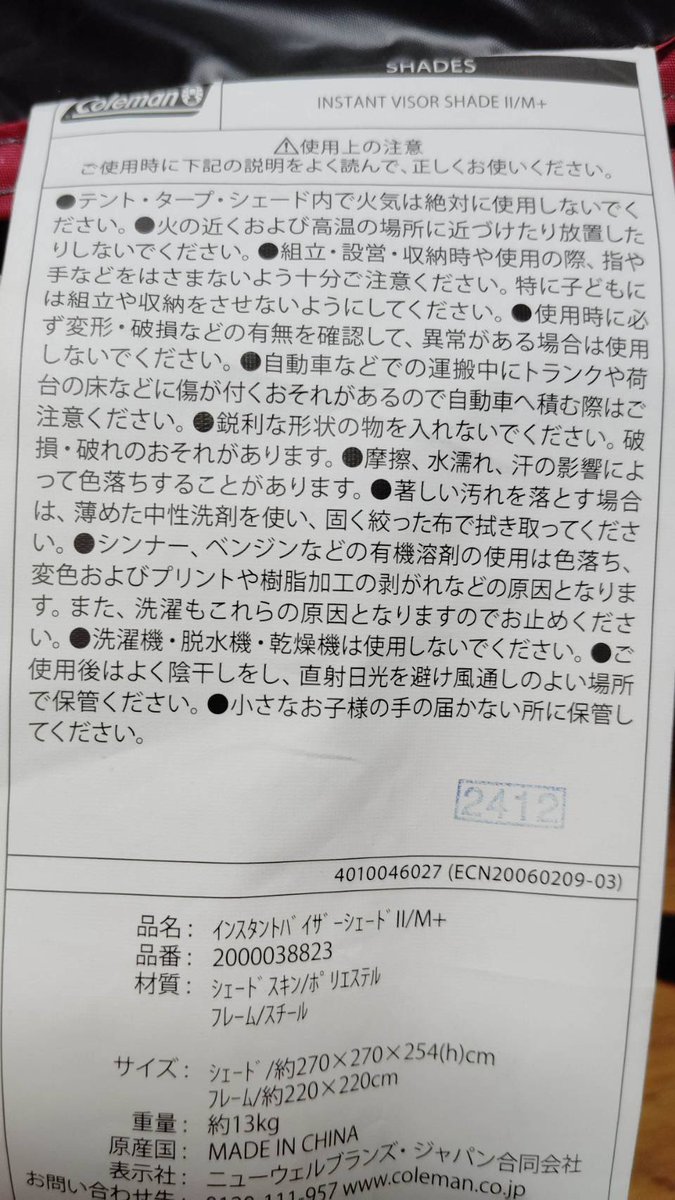 SHADES
Coleman
INSTANT VISOR SHADE II/M+
⚠使用上の注意
ご使用時に下記の説明をよく読んで、正しくお使いください。
●テント・タープ・シェード内で火気は絶対に使用しないでく
ださい。●火の近くおよび高温の場所に近づけたり放置した
りしないでください。●組立・設営・収納時や使用の際、指や
手などをはさまないよう十分ご注意ください。特に子どもに
は組立や収納をさせないようにしてください。●使用時に必
ず変形・破損などの有無を確認して、異常がある場合は使用
しないでください。●自動車などでの運搬中にトランクや荷
台の床などに傷が付くおそれがあるので自動車へ積む際はご
注意ください。●鋭利な形状の物を入れないでください。破
損・破れのおそれがあります。●摩擦、水濡れ、汗の影響によ
って色落ちすることがあります。●著しい汚れを落とす場合
は、薄めた中性洗剤を使い、固く絞った布で拭き取ってくださ
い。●シンナー、ベンジンなどの有機溶剤の使用は色落ち、
変色およびプリントや樹脂加工の剥がれなどの原因となりま
す。また、洗濯もこれらの原因となりますのでお止めくださ
い。●洗濯機・脱水機・乾燥機は使用しないでください。●ご
使用後はよく陰干しをし、直射日光を避け風通しのよい場所
で保管ください。●小さなお子様の手の届かない所に保管し
てください。
2412
4010046027 (ECN20060209-03)
品名: ｲﾝｽﾀﾝﾄﾊﾞｲｻﾞｰｼｪｰﾄﾞII/M+
品番: 2000038823
材質: ｼｪｰﾄﾞｽｷﾝ/ﾎﾟﾘｴｽﾃﾙ
ﾌﾚｰﾑ/ｽﾁｰﾙ
サイズ: ｼｪｰﾄﾞ/約270×270×254(h)cm
ﾌﾚｰﾑ/約220×220cm
重量: 約13kg
原産国: MADE IN CHINA
表示社: ニューウェルブランズ・ジャパン合同会社
お問い合わせ先: 0120-111-957 www.coleman.co.jp